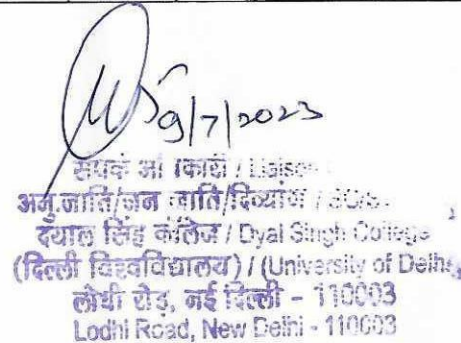 9/7/2023
संपर्क / Liaison
अनु.जाति/जन जाति/दिव्यांग /
दयाल सिंह कॉलेज / Dyal Singh College
(दिल्ली विश्वविद्यालय) / (University of Delhi)
लोधी रोड़, नई दिल्ली - 110003
Lodhi Road, New Delhi - 110003